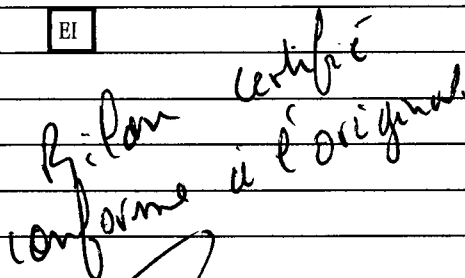 EI
Bilan certifié
conforme à l'original